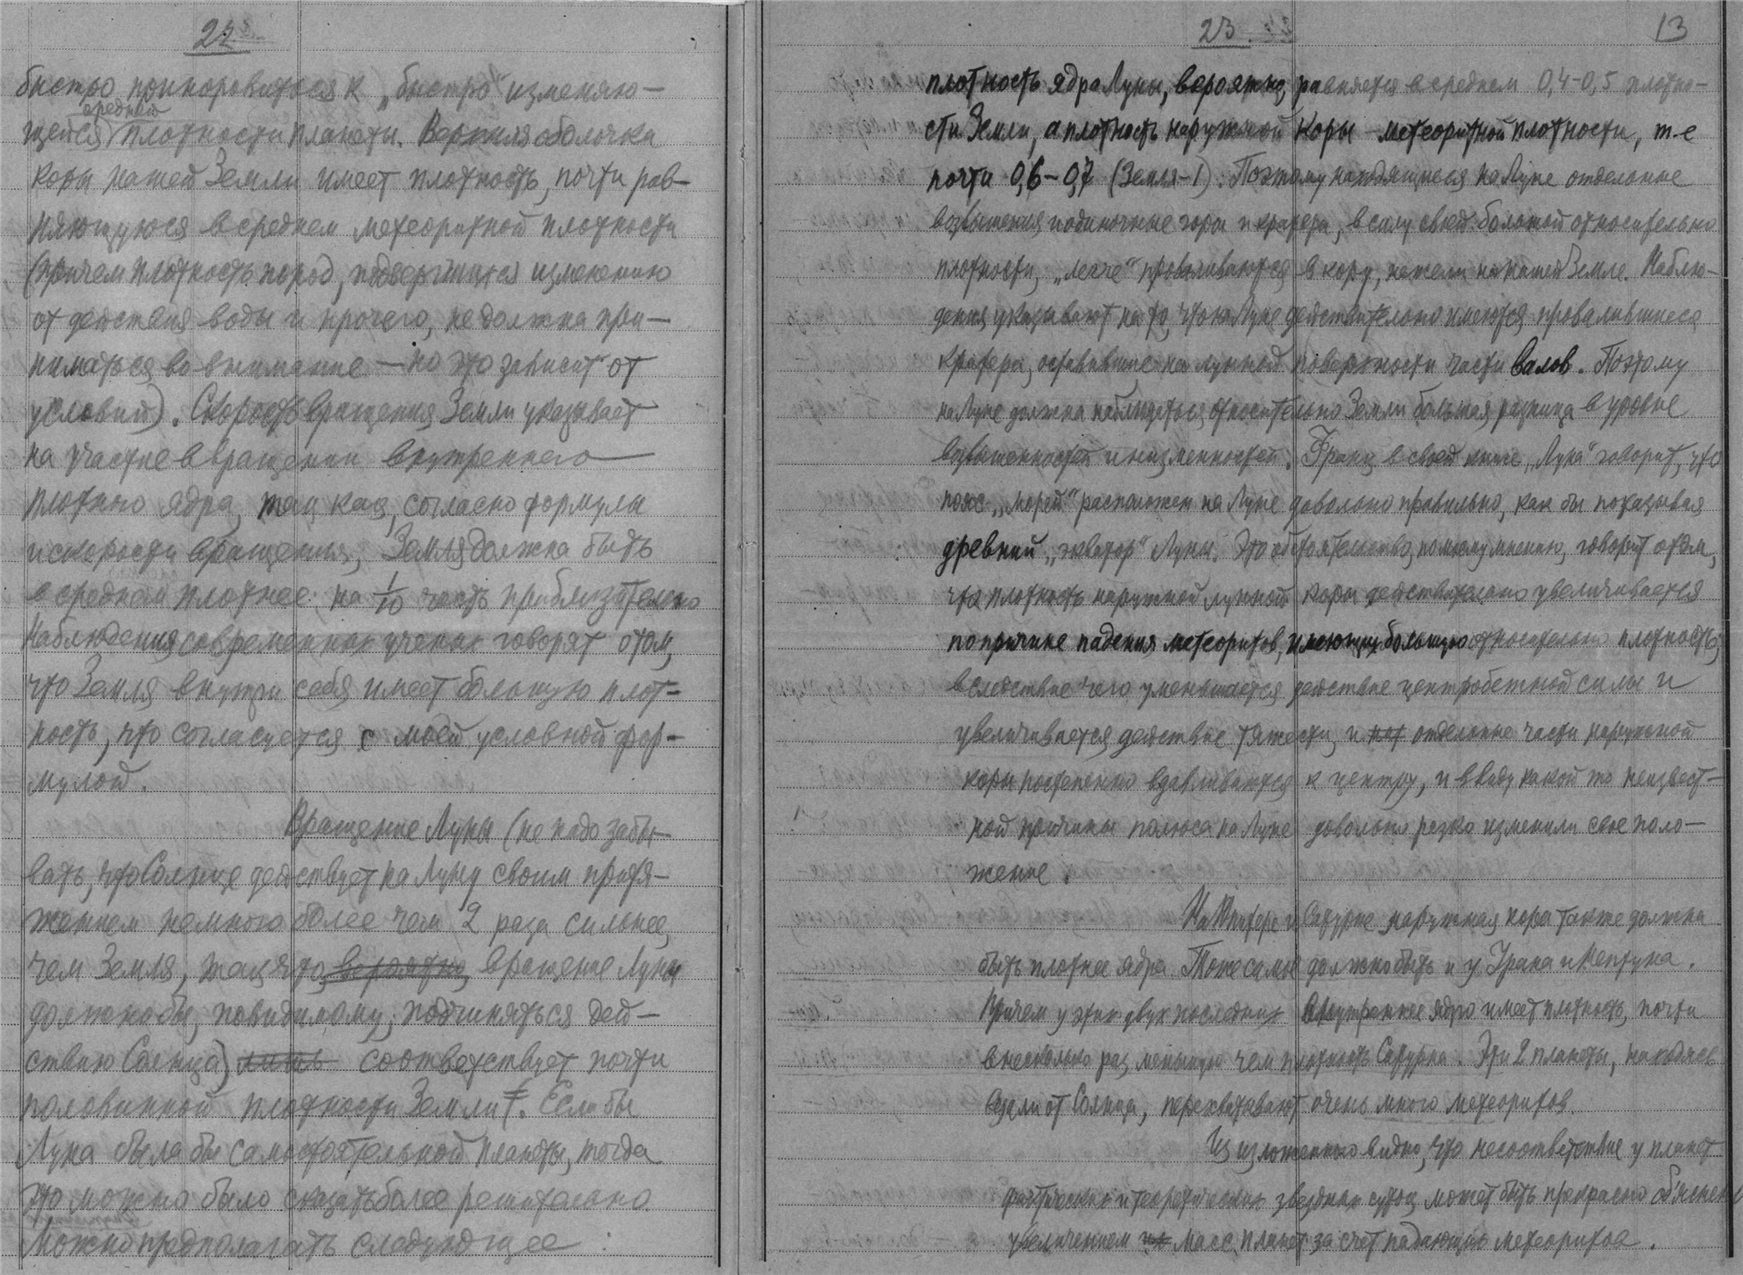 22
быстро приноровиться к „быстро" изменяю-
средней
щейся плотности планеты. Верхняя оболочка
коры нашей Земли имеет плотность, почти рав-
няющуюся в среднем метеоритной плотности
(причем плотность пород, подвергшихся изменению
от действия воды и прочего, не должна при-
ниматься во внимание – но это зависит от
условий). Скорость вращения Земли указывает
на участие в вращении внутреннего
плотного ядра, так как, согласно формулы
и скорости вращения, Земля должна быть
в среднем плотнее на 1/10 часть приблизительно
Наблюдения современных ученых говорят о том,
что Земля внутри себя имеет большую плот-
ность, что согласуется с моей условной фор-
мулой.
Вращение Луны (не надо забы-
вать, что Солнце действует на Луну своим притя-
жением немного более чем 2 раза сильнее,
чем Земля, так что, вероятно, вращение Луны
должно бы, повидимому, подчиняться дей-
ствию Солнца) лишь соответствует почти
половинной плотности Земли. Если бы
Луна была бы самостоятельной планеты, тогда
это можно было сказать более решительно
Можно предполагать следующее:
23
13
плотность ядра Луны, вероятно, равняется в среднем 0,4-0,5 плотно-
сти Земли, а плотность наружной коры – метеоритной плотности, т-е
почти 0,6-0,7 (Земля-1). Поэтому находящиеся на Луне отдельные
возвышения и одиночные горы и кратеры, в силу своей большой относительно
плотности, „легче" проваливаются в кору, нежели на нашей Земле. Наблю-
дения указывают на то, что на Луне действительно имеются провалившиеся
кратеры, оставившие на лунной поверхности части валов. Поэтому
на Луне должна наблюдаться относительно Земли большая разница в уровне
возвышенностей и низменностей. Франц в своей книге „Луна" говорит, что
пояс „морей" расположен на Луне довольно правильно, как бы показывая
древний „экватор" Луны. Это обстоятельство, по моему мнению, говорит о том,
что плотность наружной лунной коры действительно увеличивается
по причине падения метеоритов, имеющих большую относительно плотность,
вследствие чего уменьшается действие центробежной силы и
увеличивается действие тяжести, и отдельные части наружной
коры постепенно вдавливаются к центру, и ввиду какой то неизвест-
ной причины полюса на Луне довольно резко изменили свое поло-
жение.
На Юпитере и Сатурне наружная кора также должна
быть плотнее ядра. Тоже самое должно быть и у Урана и Нептуна.
Причем у этих двух последних внутреннее ядро имеет плотность, почти
в несколько раз меньшую чем плотность Сатурна. Эти 2 планеты, находясь
вдали от Солнца, перехватывают очень много метеоритов.
Из изложенного видно, что несоответствие у планет
фактических и теоретических звездных суток может быть прекрасно об'яснено
увеличением их масс планет за счет падающих метеоритов.